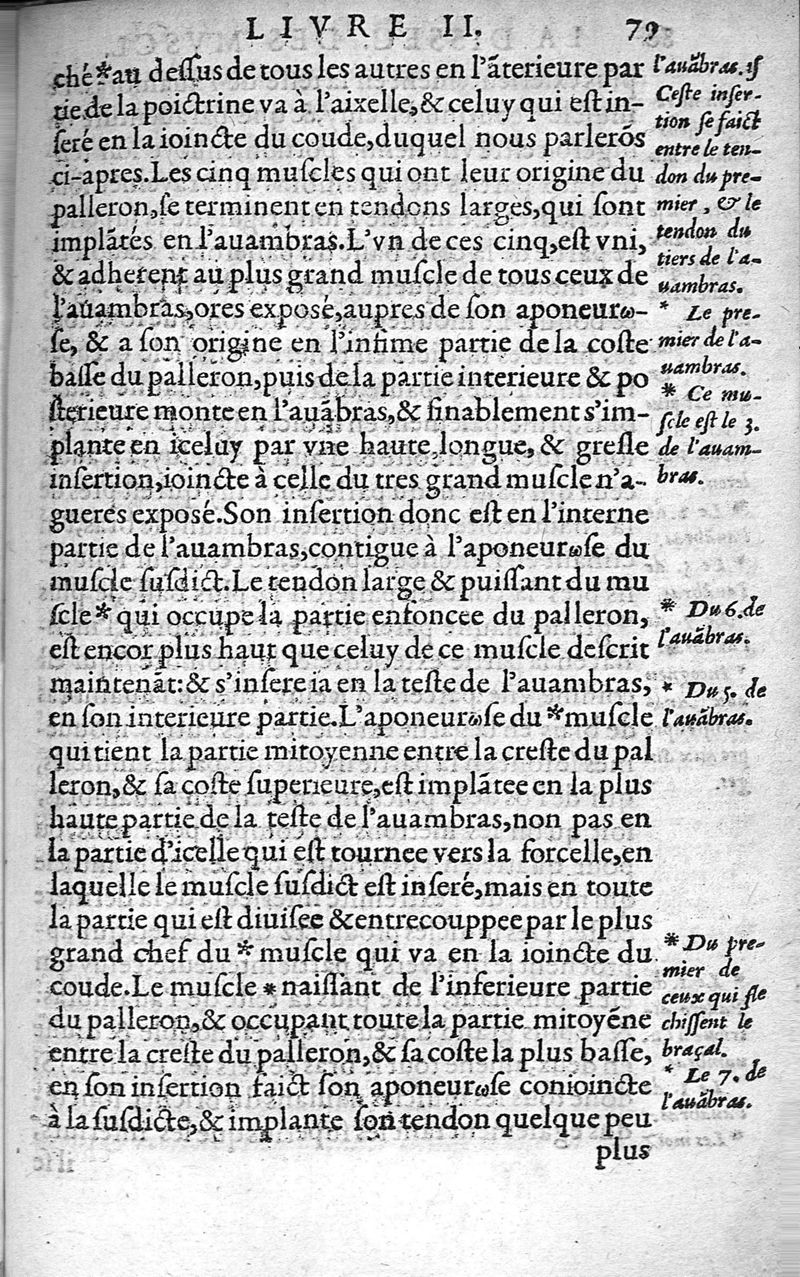 LIVRE II. 79
ché*au deſſus de tous les autres en l'ãterieure par
tie de la poictrine va à l'aixelle,&celuy qui eſt in-
ſeré en la ioincte du coude,duquel nous parlerõs
ci-apres.Les cinq muſcles qui ont leur origine du
palleron,ſe terminent en tendons larges,qui ſont
implãtés en l'auambras.L'vn de ces cinq,eſt vni,
& adherent au plus grand muſcle de tous ceux de
l'auambras,ores expoſé,aupres de ſon aponeurω-
ſe, & a ſon origine en l'infime partie de la coſte
baſſe du palleron,puis de la partie interieure & po
ſterieure monte en l'auãbras,& finablement s'im-
plante en iceluy par vne haute,longue, & greſle
inſertion,ioincte à celle du tres grand muſcle n'a-
gueres expoſé.Son inſertion donc eſt en l'interne
partie de l'auambras,contigue à l'aponeurωſe du
muſcle ſuſdict.Le tendon large & puiſſant du mu
ſcle* qui occupe la partie enfoncee du palleron,
eſt encor plus haut que celuy de ce muſcle deſcrit
maintenãt:& s'inſere ia en la teſte de l'auambras,
en ſon interieure partie.L'aponeurωſe du *muſcle
qui tient la partie mitoyenne entre la creſte du pal
leron,& ſa coſte ſuperieure,eſt implãtee en la plus
haute partie de la teſte de l'auambras,non pas en
la partie d'icelle qui eſt tournee vers la forcelle,en
laquelle le muſcle ſuſdict eſt inſeré,mais en toute
la partie qui eſt diuiſee &entrecouppee par le plus
grand chef du * muſcle qui va en la ioincte du
coude.Le muſcle * naiſſant de l'inferieure partie
du palleron,& occupant toute la partie mitoyẽne
entre la creſte du palleron,& ſa coſte la plus baſſe,
en ſon inſertion faict ſon aponeurωſe conioincte
à la ſuſdicte,& implante ſon tendon quelque peu
plus
l'auãbras.iſ
Ceſte inſer-
tion ſe faict
entre le ten-
don du pre-
mier, & le
tendon du
tiers de l'a-
uambras.
* Le pre-
mier de l'a-
uambras.
* Ce mu-
ſcle eſt le 3.
de l'auam-
bras.
* Du 6. de
l'auãbras.
* Du 5. de
l'auãbras.
* Du pre-
mier de
ceux qui fle
chiſſent le
braçal.
* Le 7. de
l'auãbras.